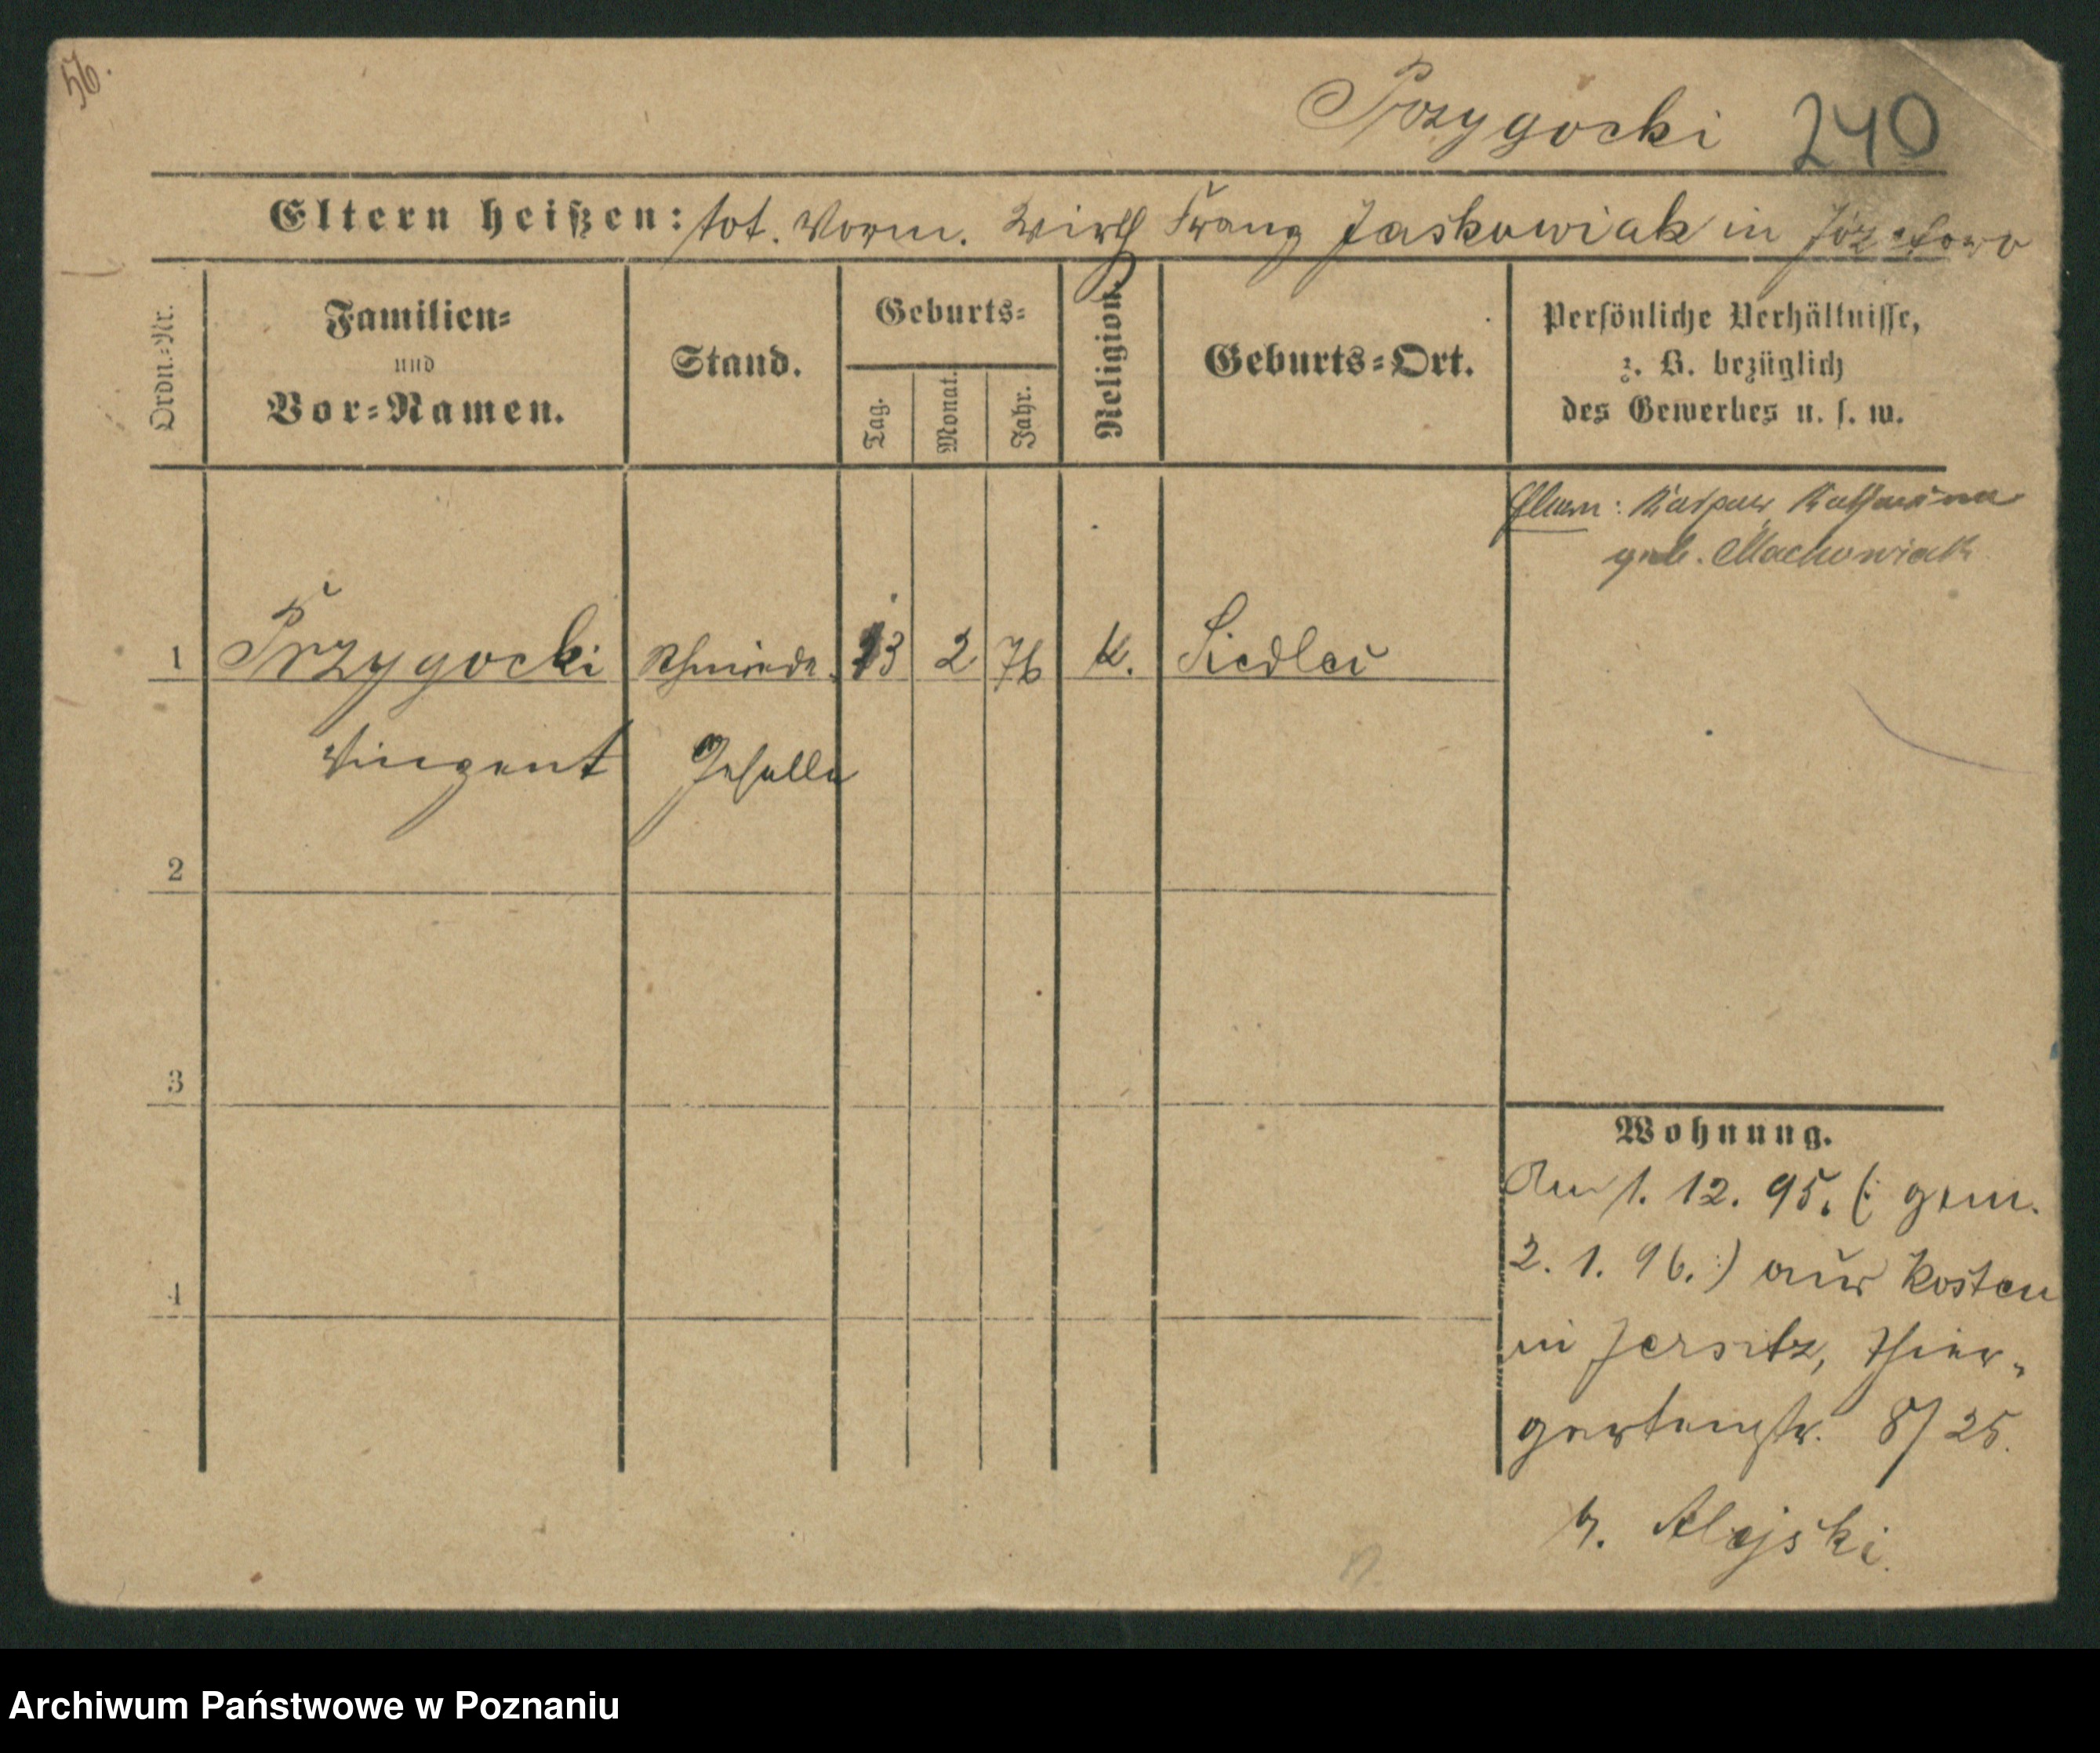 56.
Przygocki 240
Eltern heißen: tot. Vorm. Wirth Franz Jaskowiak in Józefowo
Ordn.-Nr.
Familien-
und
Vor-Namen.
Stand.
Geburts-
Tag.
Monat.
Jahr.
Religion.
Geburts-Ort.
Persönliche Verhältnisse,
z. B. bezüglich
des Gewerbes u. s. w.
Eltern: Kaspar Katharina
geb. Machowiak
1 Przygocki Schmiede- 23 2 76 K. Siedlec
Vinzent Geselle
2
3
4
Wohnung.
Am 1. 12. 95. (: gem.
2. 1. 96. :) aus Kosten
in Jersitz, Thier-
gartenstr. 8/25.
b. Alejski.
Archiwum Państwowe w Poznaniu